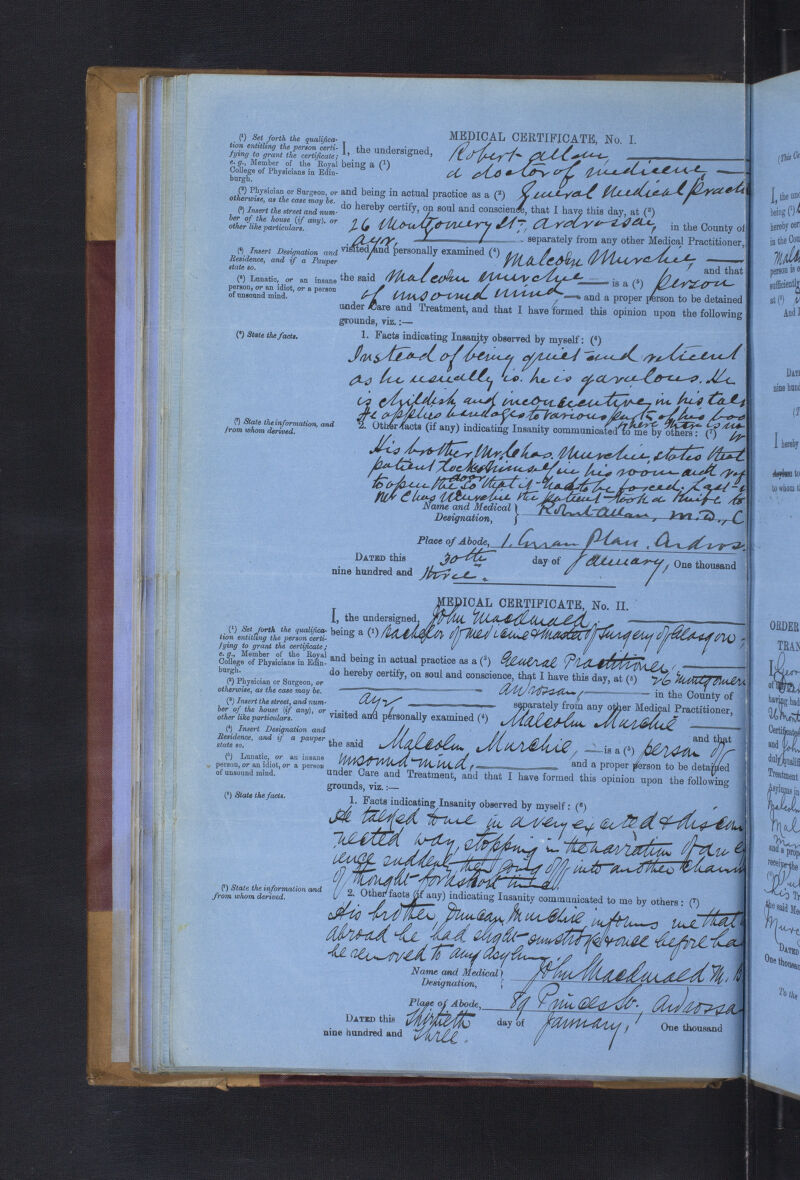 MEDICAL CERTIFICATE, No. I.
(¹) Set forth the qualifica-
tion entitling the person certi-
fying to grant the certificate;
e. g., Member of the Royal
College of Physicians in Edin-
burgh.
I, the undersigned, Robert Allan,
being a (¹) a doctor of medicine,
(²) Physician or Surgeon, or
otherwise, as the case may be.
and being in actual practice as a (²) General Medical Practi
(³) Insert the street and num-
ber of the house (if any), or
other like particulars.
do hereby certify, on soul and conscience, that I have this day, at (³)
26 Montgomery St., Ardrossan, in the County of
Ayr, separately from any other Medical Practitioner,
(⁴) Insert Designation and
Residence, and if a Pauper
state so.
visited and personally examined (⁴) Malcolm Murchie, and that
(⁵) Lunatic, or an insane
person, or an idiot, or a person
of unsound mind.
the said Malcolm Murchie is a (⁵) person
of unsound mind and a proper person to be detained
under Care and Treatment, and that I have formed this opinion upon the following
grounds, viz.:—
(⁶) State the facts.
1. Facts indicating Insanity observed by myself: (⁶)
Instead of being quiet and reticent
as he usually is. he is garulous. He
is childish and inconsecutive in his talk
He applies bandages to various parts of his bod
where there is no
(⁷) State the information, and
from whom derived.
2. Other facts (if any) indicating Insanity communicated to me by others: (⁷)
His brother Mr. Chas. Murchie, states that
patient locked himself in his room and ref
to open the door so that it had to be forced. Last
Mr Chas Murchie the patient took a knife to
Name and Medical
Designation, Robert Allan, M.D., C
Place of Abode, 1. Arran Place. Ardros.
DATED this 30th day of January, One thousand
nine hundred and three.
MEDICAL CERTIFICATE, No. II.
(¹) Set forth the qualifica-
tion entitling the person certi-
fying to grant the certificate;
e. g., Member of the Royal
College of Physicians in Edin-
burgh.
I, the undersigned, John Macdonald
being a (¹) Bachelor of medicine & Master of Surgery of Glasgow
and being in actual practice as a (²) General Practitioner,
(²) Physician or Surgeon, or
otherwise, as the case may be.
do hereby certify, on soul and conscience, that I have this day, at (³) 26 Montgomeri
(³) Insert the street, and num-
ber of the house (if any), or
other like particulars.
Ardrossan, in the County of
Ayr, separately from any other Medical Practitioner,
(⁴) Insert Designation and
Residence, and if a pauper
state so.
visited and personally examined (⁴) Malcolm Murchie and that
(⁵) Lunatic, or an insane
person, or an idiot, or a person
of unsound mind.
the said Malcolm Murchie, is a (⁵) person of
unsound mind, and a proper person to be detained
under Care and Treatment, and that I have formed this opinion upon the following
grounds, viz.:—
(⁶) State the facts.
1. Facts indicating Insanity observed by myself: (⁶)
He talked to me in a very excited & discon
nected way, stopping in the narration of an e
ience suddenly, then going off into another chann
of thought for a short time.
(⁷) State the information and
from whom derived.
2. Other facts (if any) indicating Insanity communicated to me by others: (⁷)
His brother Duncan Murchie informs me that
abroad he had slight sunstroke once before ha
be removed to any asylum.
Name and Medical
Designation, John Macdonald M. B
Place of Abode, 89 Princes St., Ardrossa
DATED this Thirtieth day of January, One thousand
nine hundred and three.
ORDER
TRAN